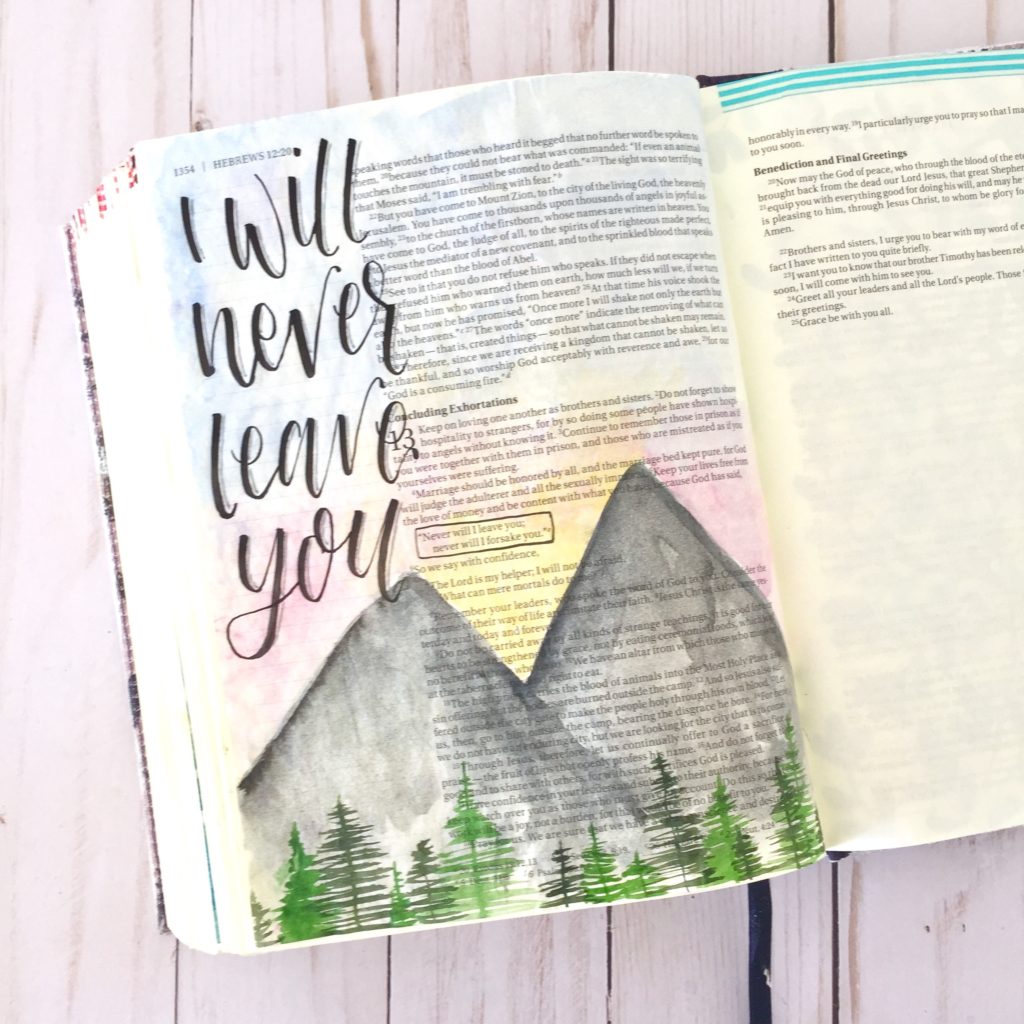 1354 | HEBREWS 12:20
I will
never
leave
you
speaking words that those who heard it begged that no further word be spoken to
them, 20because they could not bear what was commanded: "If even an animal
touches the mountain, it must be stoned to death." 21The sight was so terrifying
that Moses said, "I am trembling with fear."
22But you have come to Mount Zion, to the city of the living God, the heavenly
Jerusalem. You have come to thousands upon thousands of angels in joyful as-
sembly, 23to the church of the firstborn, whose names are written in heaven. You
have come to God, the Judge of all, to the spirits of the righteous made perfect,
Jesus the mediator of a new covenant, and to the sprinkled blood that speaks
better word than the blood of Abel.
25See to it that you do not refuse him who speaks. If they did not escape when
refused him who warned them on earth, how much less will we, if we turn
from him who warns us from heaven? 26At that time his voice shook the
earth, but now he has promised, "Once more I will shake not only the earth but
the heavens." 27The words "once more" indicate the removing of what can
shaken—that is, created things—so that what cannot be shaken may remain.
Therefore, since we are receiving a kingdom that cannot be shaken, let us
be thankful, and so worship God acceptably with reverence and awe, 29for our
"God is a consuming fire."
Concluding Exhortations
13 Keep on loving one another as brothers and sisters. 2Do not forget to show
hospitality to strangers, for by so doing some people have shown hosp-
to angels without knowing it. 3Continue to remember those in prison as if
you were together with them in prison, and those who are mistreated as if you
yourselves were suffering.
4Marriage should be honored by all, and the marriage bed kept pure, for God
will judge the adulterer and all the sexually Keep your lives free from
the love of money and be content with what because God has said,
"Never will I leave you;
never will I forsake you."
6So we say with confidence,
The Lord is my helper; I will not be afraid.
What can mere mortals do to
your leaders, who spoke the word of God to you. Consider the
outcome of their way of life and imitate their faith. 8Jesus Christ is the same yes-
terday and today and forever.
Do not be carried away by all kinds of strange teachings. It is good for
hearts to be by grace, not by eating ceremonial foods, which
10We have an altar from which those who
at the tabernacle right to eat.
carries the blood of animals into the Most Holy Place
sin offering, but the are burned outside the camp. 12And so Jesus also
fered outside the city gate to make the people holy through his own blood.
us, then, go to him outside the camp, bearing the disgrace he bore. 14For here
we do not have an enduring city, but we are looking for the city that is to come.
Through Jesus, therefore, let us continually offer to God a sacrifice
the fruit of lips that openly profess his name. 16And do not forget
good and to share with others, for with such sacrifices God is pleased.
confidence in your leaders and submit to their authority, because
watch over you as those who must give account. Do this so
a joy, not a burden, for that of no benefit to you.
us. We are sure that we have
honorably in every way. 19I particularly urge you to pray so that I ma
to you soon.
Benediction and Final Greetings
20Now may the God of peace, who through the blood of the ete
brought back from the dead our Lord Jesus, that great Shepher
21equip you with everything good for doing his will, and may he
is pleasing to him, through Jesus Christ, to whom be glory fo
Amen.
22Brothers and sisters, I urge you to bear with my word of e
fact I have written to you quite briefly.
23I want you to know that our brother Timothy has been rele
soon, I will come with him to see you.
24Greet all your leaders and all the Lord's people. Those
their greetings.
25Grace be with you all.